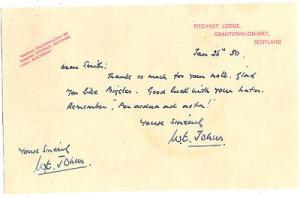 PITCHROY LODGE,
GRANTOWN-ON-SPEY,
SCOTLAND
Jan 26th 50.
Dear Smith:
Thanks so much for your note. Glad
you like Biggles. Good luck with your
Remember, "Per ardua ad astra!"
Yours Sincerely
W.E. Johns
Yours Sincerely
W.E. Johns